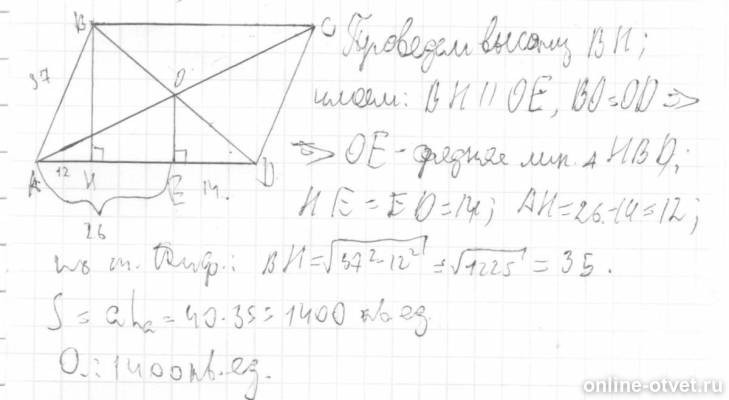 B
C
37
O
A
12
H
E
14.
D
26
Проведем высоту BH;
имеем: BH || OE, BO=OD ⇒
⇒ OE - средняя лин. Δ HBD;
HE = ED = 14; AH = 26-14 = 12;
из т. Пиф.: BH = √37²-12² = √1225 = 35.
S = ah = 40·35 = 1400 кв.ед.
О.: 1400 кв.ед.
online-otvet.ru